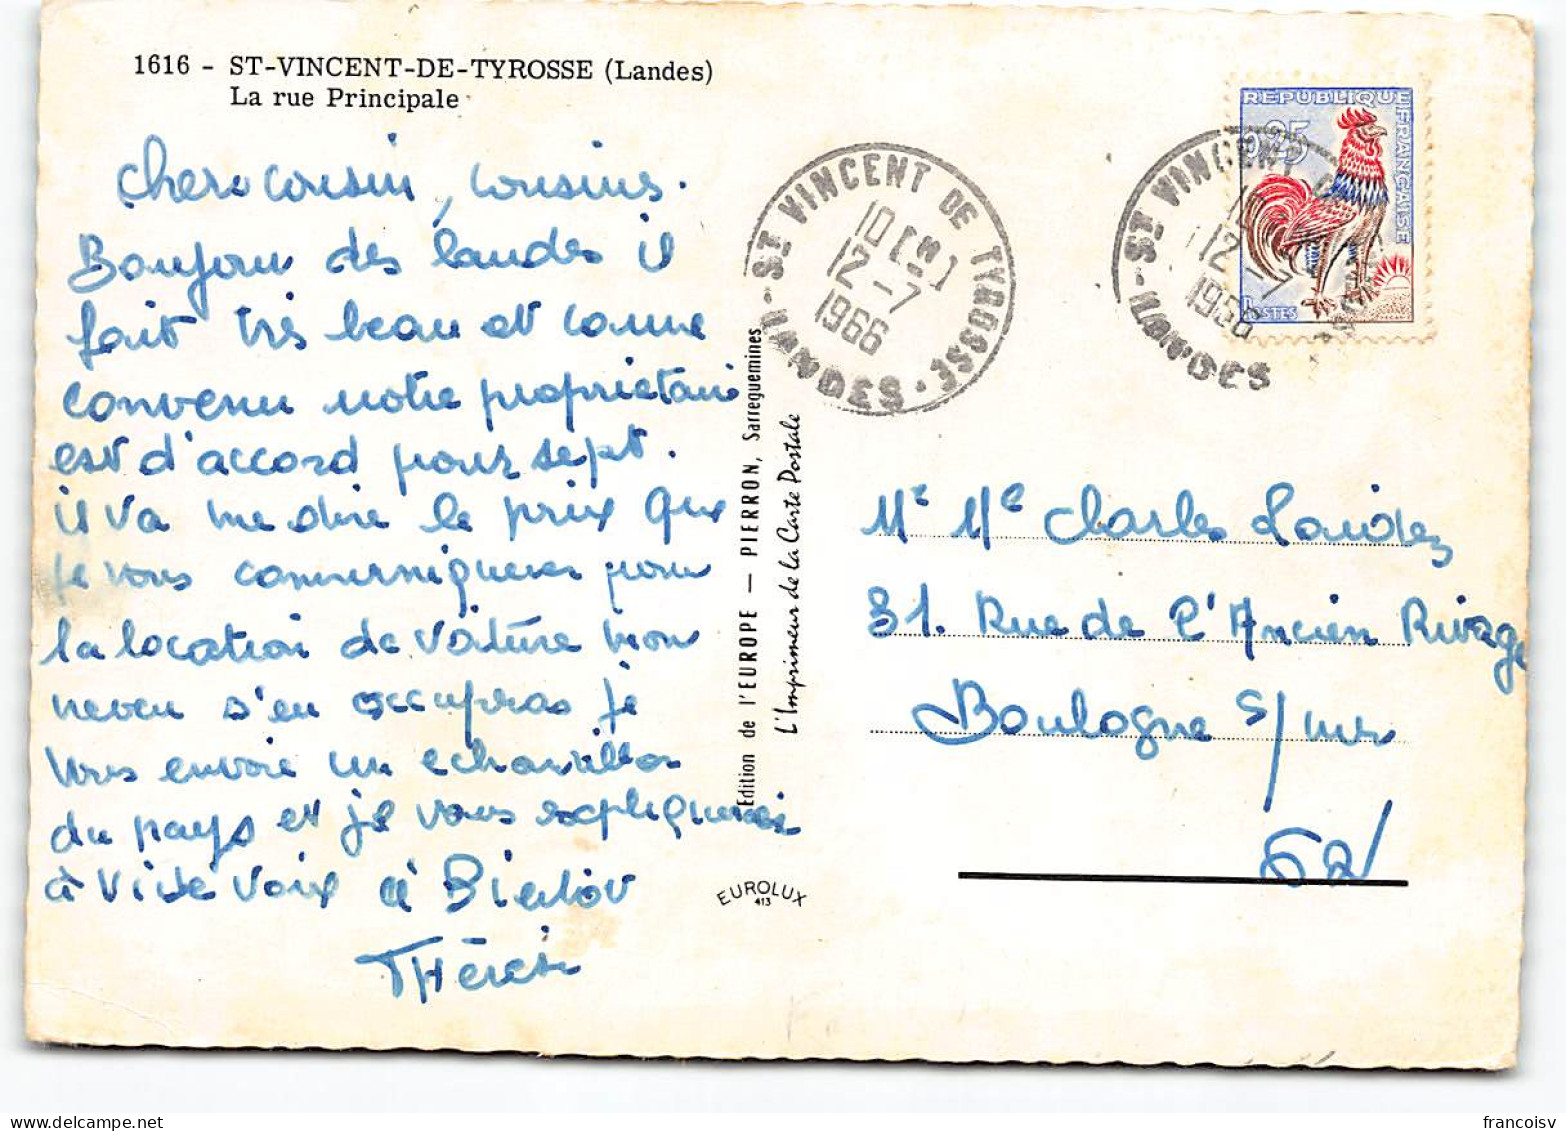 1616 - ST-VINCENT-DE-TYROSSE (Landes)
La rue Principale
Chers cousin, cousins.
Bonjour des landes il
fait très beau et comme
convenu notre propriétaire
est d'accord pour sept.
il va me dire le prix que
je vous communiquerai pour
la location de voiture mon
neveu s'en occuperas je
vous envoie un echantillon
du pays et je vous expliquerai
à vive voix à Bientôt
Thérèse
Edition de l'EUROPE — PIERRON, Sarreguemines
L'Imprimeur de la Carte Postale
EUROLUX
413
ST VINCENT DE TYROSSE
10 H
12-7
1966
LANDES
ST VINCENT DE
12-7
1966
LANDES
REPUBLIQUE
FRANCAISE
0,25
POSTES
Mr Me Charles
31. Rue de l'Ancien Rivage
Boulogne s/mer
62
francoisv